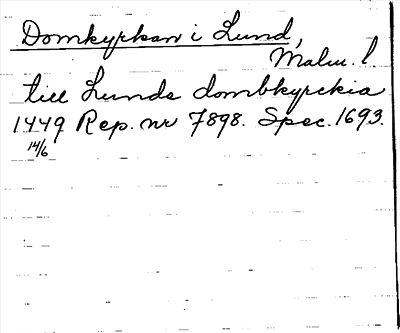 Domkyrkan i Lund,
Malm. l
till Lunde dombkyrckia
1449 Rep. nr 7898. Spec. 1693.
14/6